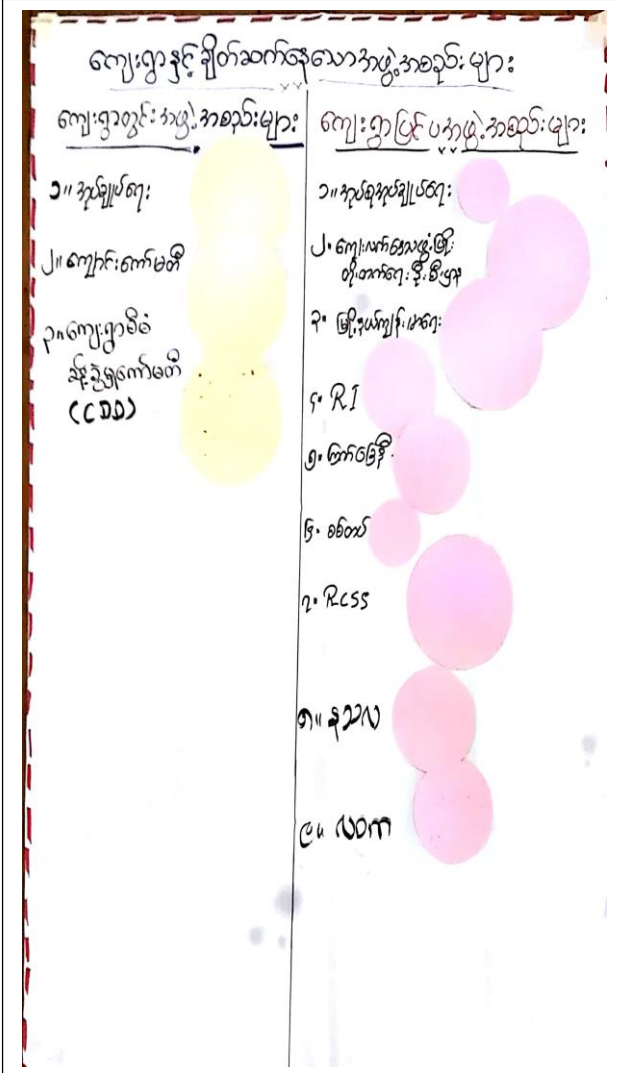 ကျေးရွာနှင့် ချိတ်ဆက်နေသောအဖွဲ့အစည်းများ
ကျေးရွာတွင်းအဖွဲ့အစည်းများ
၁။ အုပ်ချုပ်ရေး
၂။ ကျောင်းကော်မတီ
၃။ ကျေးရွာစီမံ
ကော်မတီ
(CDD)
ကျေးရွာပြင်ပအဖွဲ့အစည်းများ
၁။ အုပ်စုအုပ်ချုပ်ရေး
၂။ ကျေးလက်ဒေသဖွံ့ဖြိုး
တိုးတက်ရေး ဦးစီးဌာန
၃။ မြို့နယ်ကျန်းမာရေး
၄။ RI
၅။ ကြက်ခြေနီ
၆။ စစ်တပ်
၇။ RCSS
၈။ နသလ
၉။ လဝက